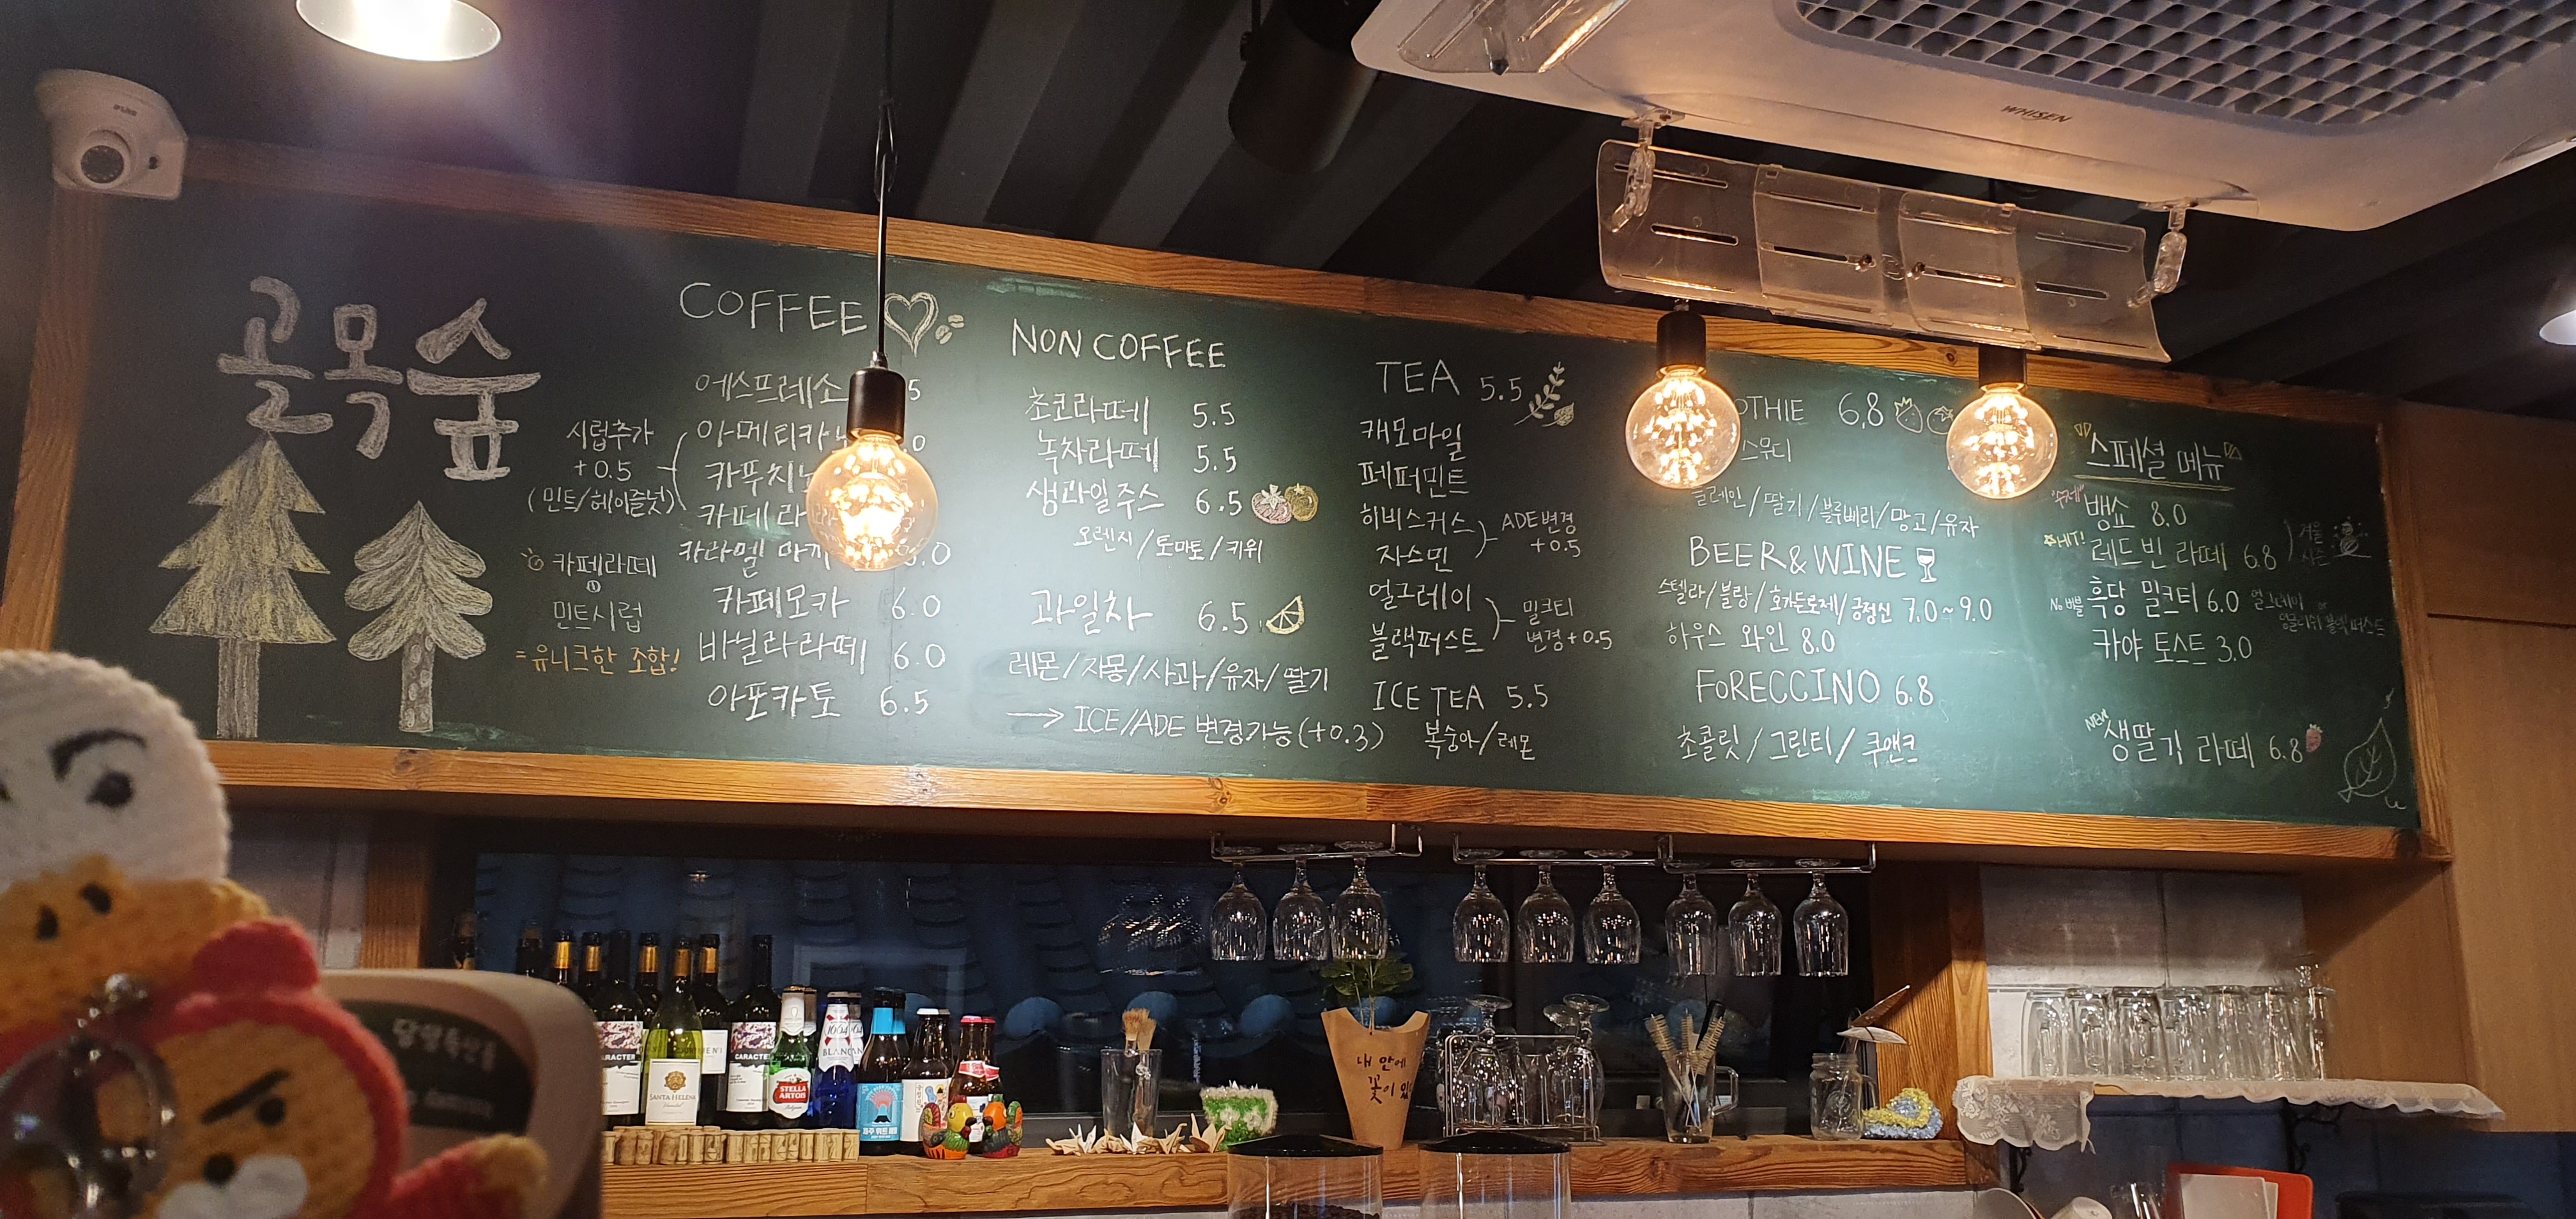 WHISEN
골목숲
시럽추가
+0.5
(민트/헤이즐넛)
카페라떼
민트시럽
= 유니크한 조합!
COFFEE
에스프레소
아메리카
카푸치
카페라
카라멜 마끼
카페모카 6.0
바닐라라떼 6.0
아포카토 6.5
NON COFFEE
초코라떼 5.5
녹차라떼 5.5
생과일주스 6.5
오렌지/토마토/키위
과일차 6.5
레몬/자몽/사과/유자/딸기
→ ICE/ADE 변경가능(+0.3)
TEA 5.5
캐모마일
페퍼민트
히비스커스
자스민
ADE변경
+0.5
얼그레이
블랙퍼스트
밀크티
변경+0.5
ICE TEA 5.5
복숭아/레몬
OTHIE 6.8
스무디
플레인/딸기/블루베리/망고/유자
BEER&WINE
스텔라/블랑/호가든로제/긍정신 7.0~9.0
하우스 와인 8.0
FORECCINO 6.8
초콜릿/그린티/쿠앤크
스페셜 메뉴
"수제" 뱅쇼 8.0
HIT! 레드빈 라떼 6.8
겨울
시즌
No 버블 흑당 밀크티 6.0 얼그레이 or
잉글리쉬 블랙퍼스트
카야 토스트 3.0
NEW 생딸기 라떼 6.8
CARACTER
SANTA HELENA
CARACTER
STELLA
ARTOIS
1664
BLANC
내 안에
꽃이 있